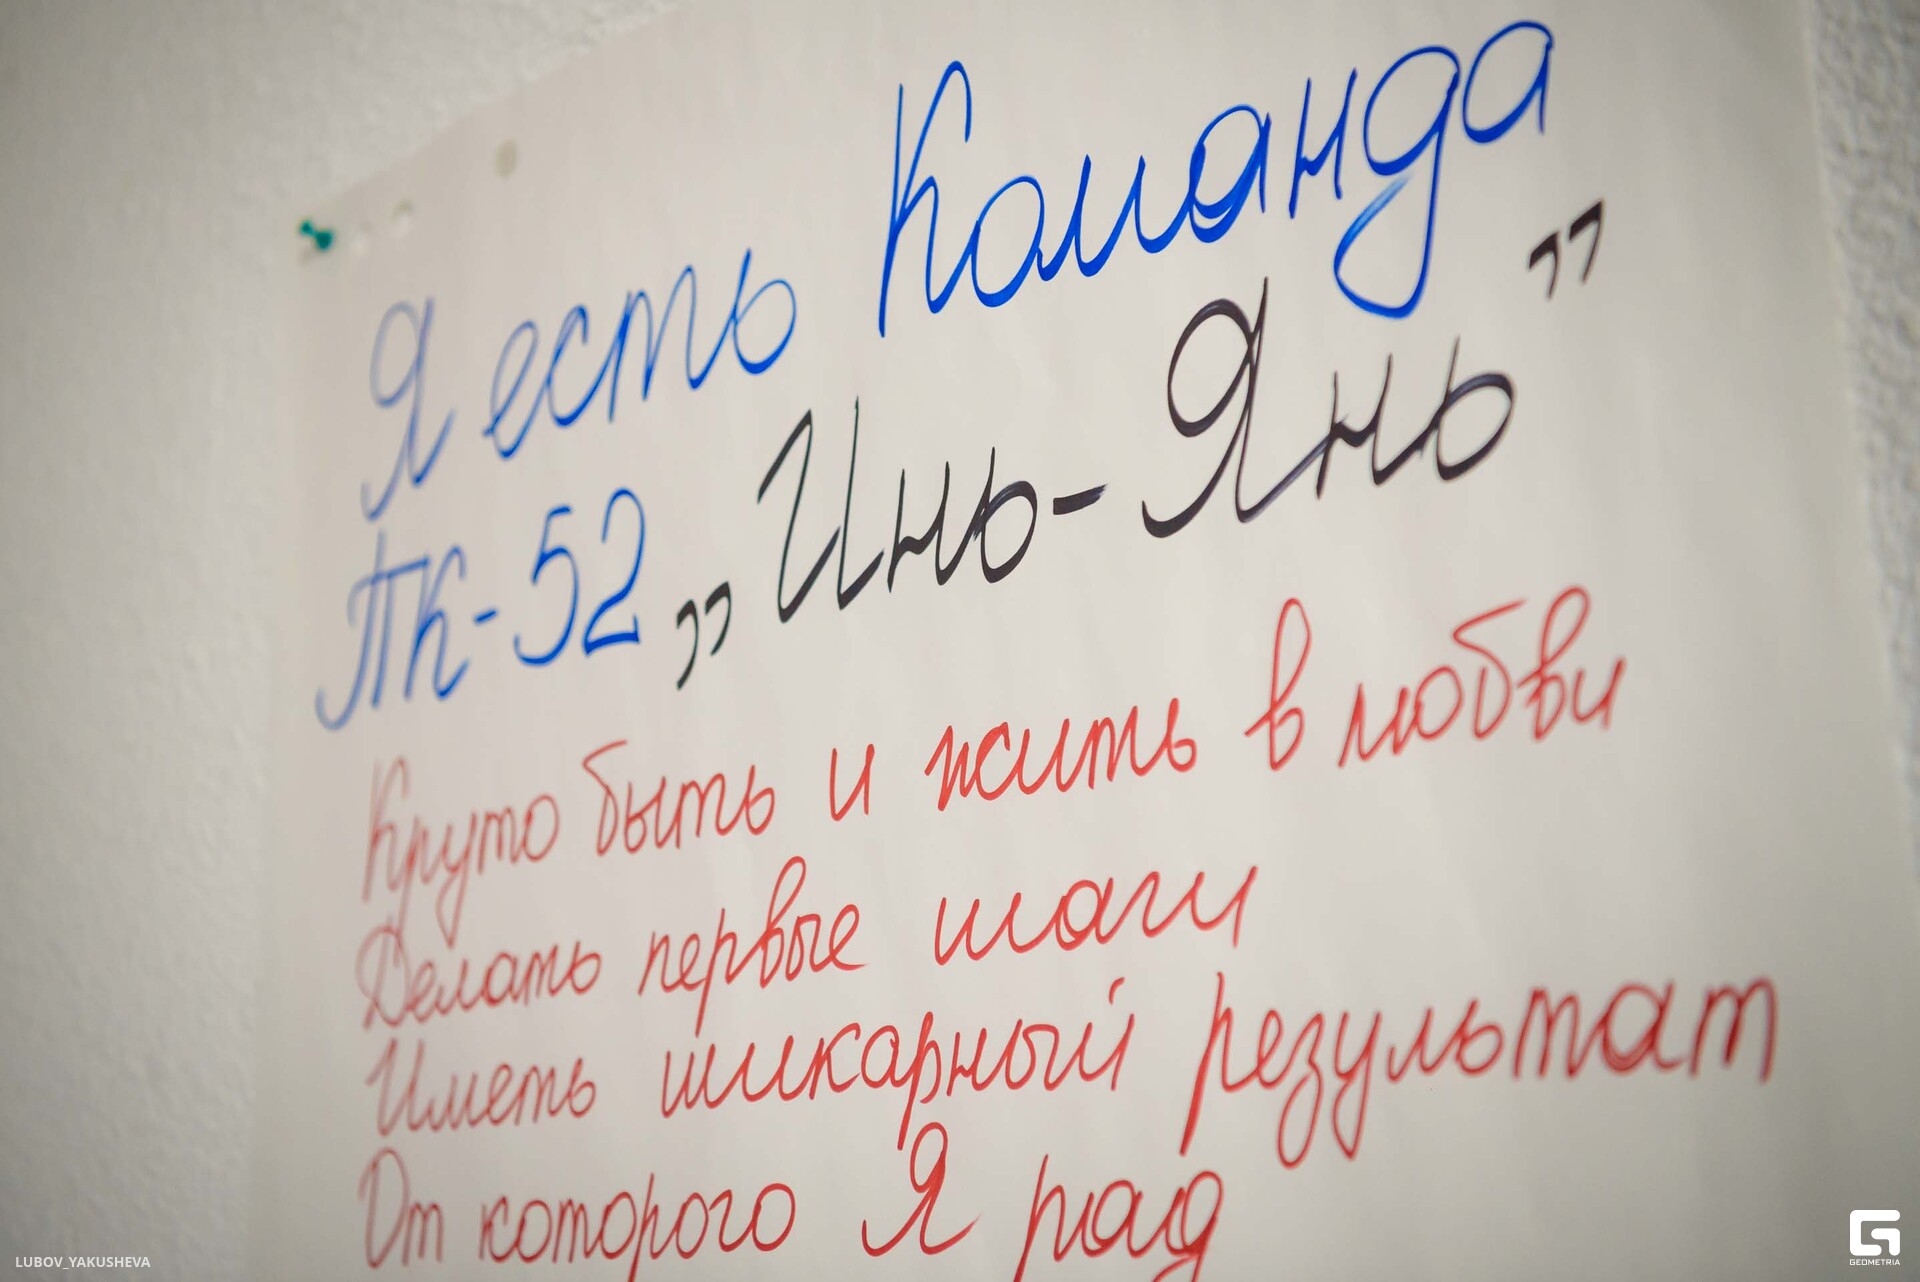 Я есть Команда
ПК-52 „Инь-Янь”
Круто быть и жить в любви
Делать первые шаги
Иметь шикарный результат
От которого Я рад
LUBOV_YAKUSHEVA
GEOMETRIA